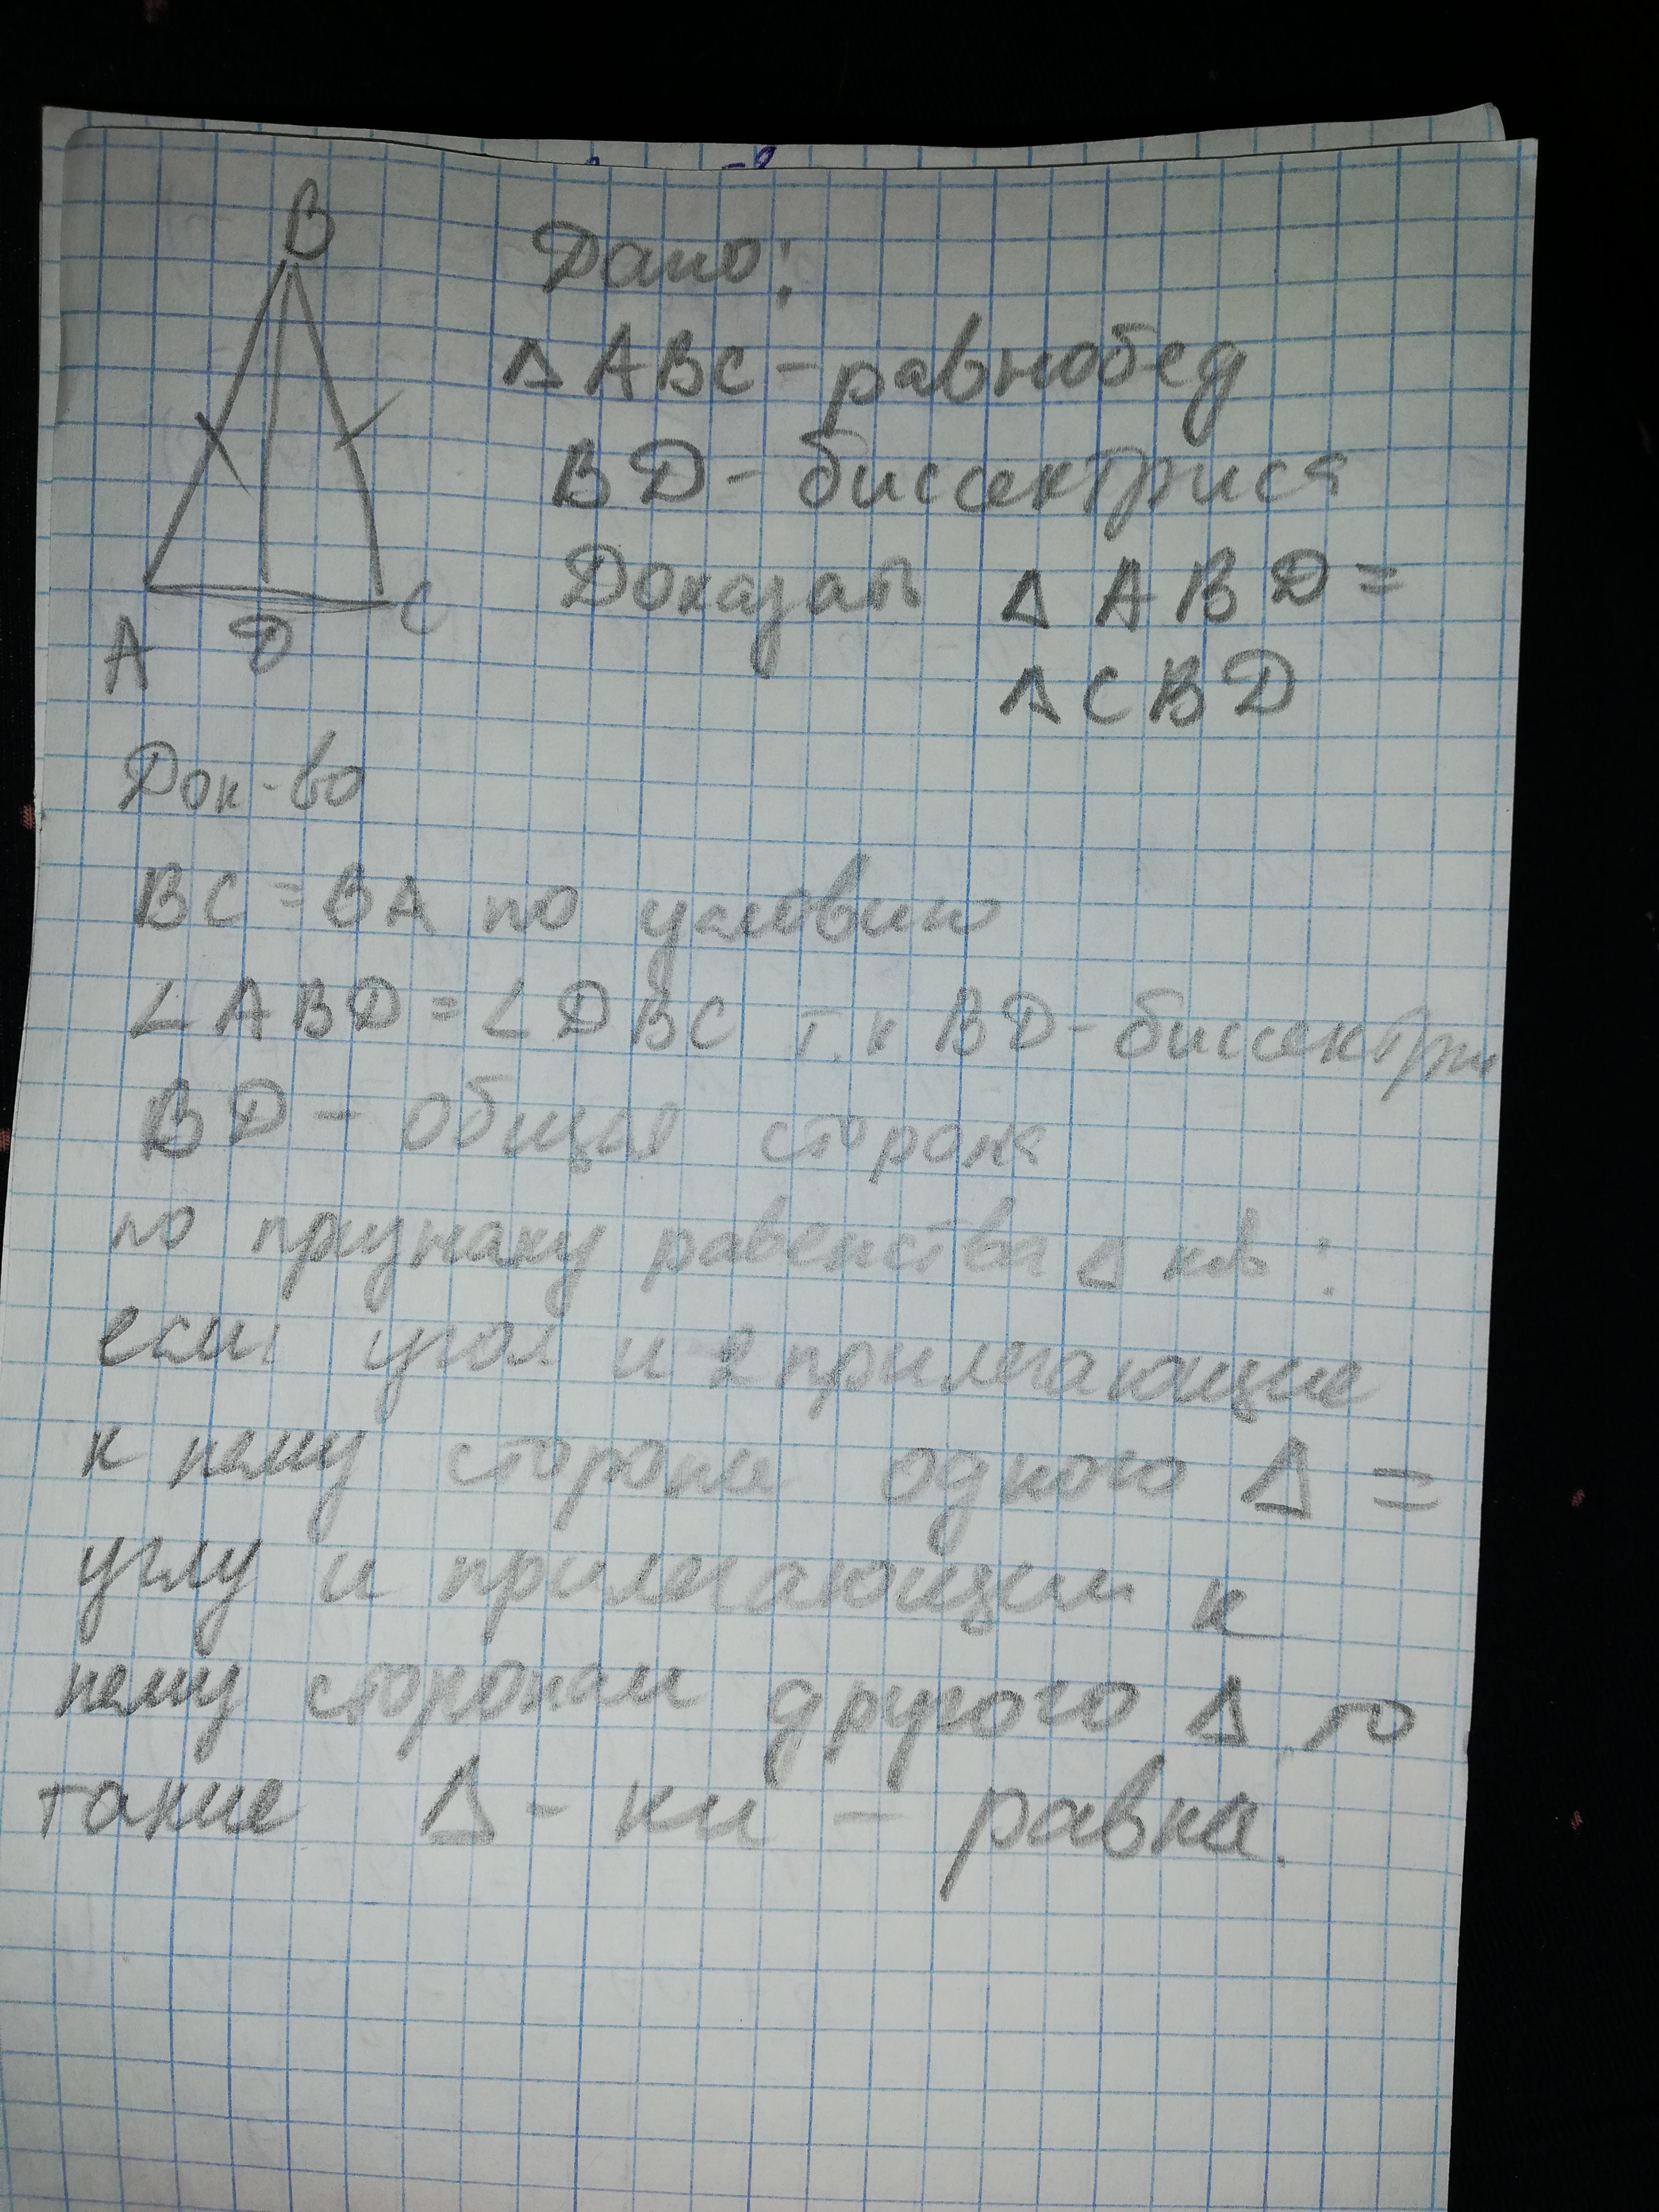 B
A D C
Дано:
△ ABC - равнобед
BD - биссектриса
Доказат △ ABD =
△ CBD
Док-во
BC = BA по условию
∠ ABD = ∠ DBC т.к BD - биссектри
BD - общая сторона
по признаку равенства △ ков:
если угол и 2 прилегающие
к нему стороны одного △ =
углу и прилегающим к
нему сторонам другого △, то
такие △ - ки - равны.